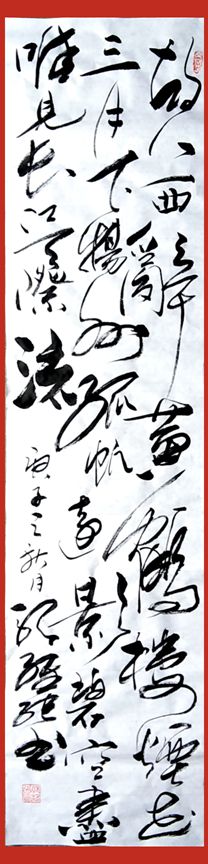 故人西辭黃鶴樓煙花
三月下揚州孤帆遠景碧空盡
唯見長江天際流
庚子之秋月 书